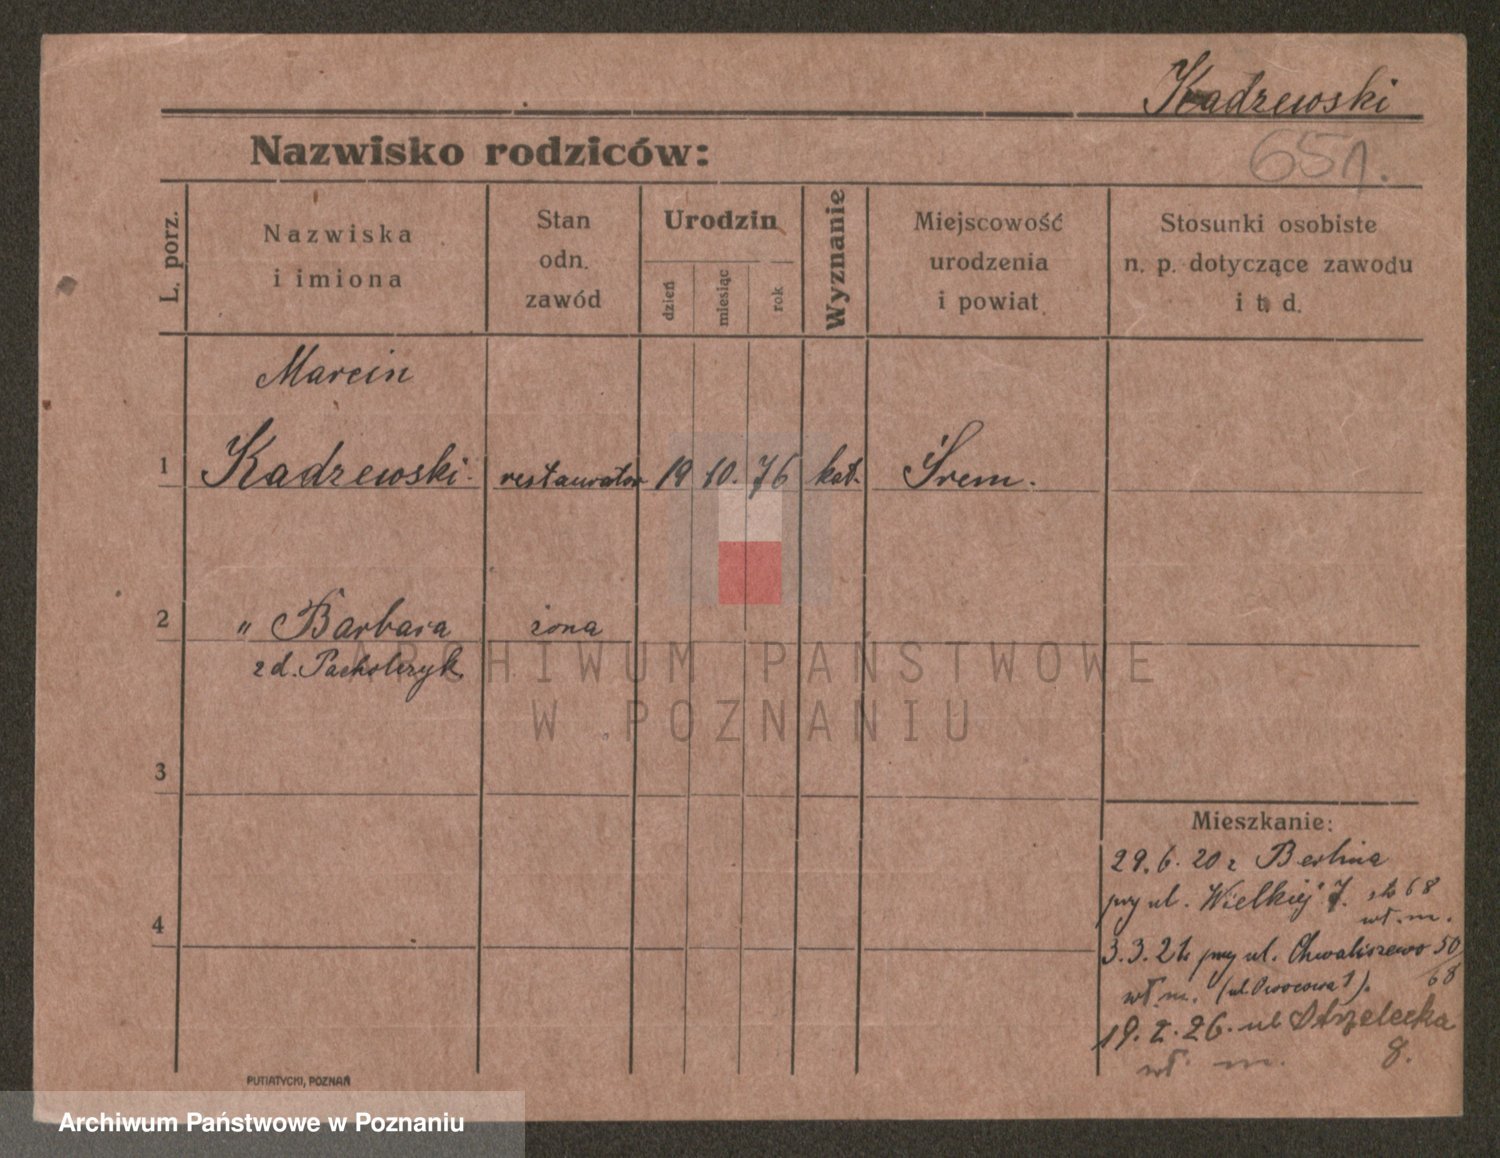 Kadrzewski
651.
Nazwisko rodziców:
L. porz.
Nazwiska
i imiona
Stan
odn.
zawód
Urodzin
dzień
miesiąc
rok
Wyznanie
Miejscowość
urodzenia
i powiat
Stosunki osobiste
n. p. dotyczące zawodu
i t. d.
Marcin
1 Kadrzewski restaurator 19 10. 76 kat. Śrem.
2 " Barbara żona
z d. Pacholczyk
ARCHIWUM PAŃSTWOWE
W POZNANIU
3
4
Mieszkanie:
29. 6. 20 z Berlina
przy ul. Wielkiej 7. 68
wł. m.
3. 3. 21 przy ul. Chwaliszewo 50
68
wł. m. (ul. Owocowa 1).
19. I. 26. ul Strzelecka
wł. m. 8.
PUTIATYCKI, POZNAŃ
Archiwum Państwowe w Poznaniu